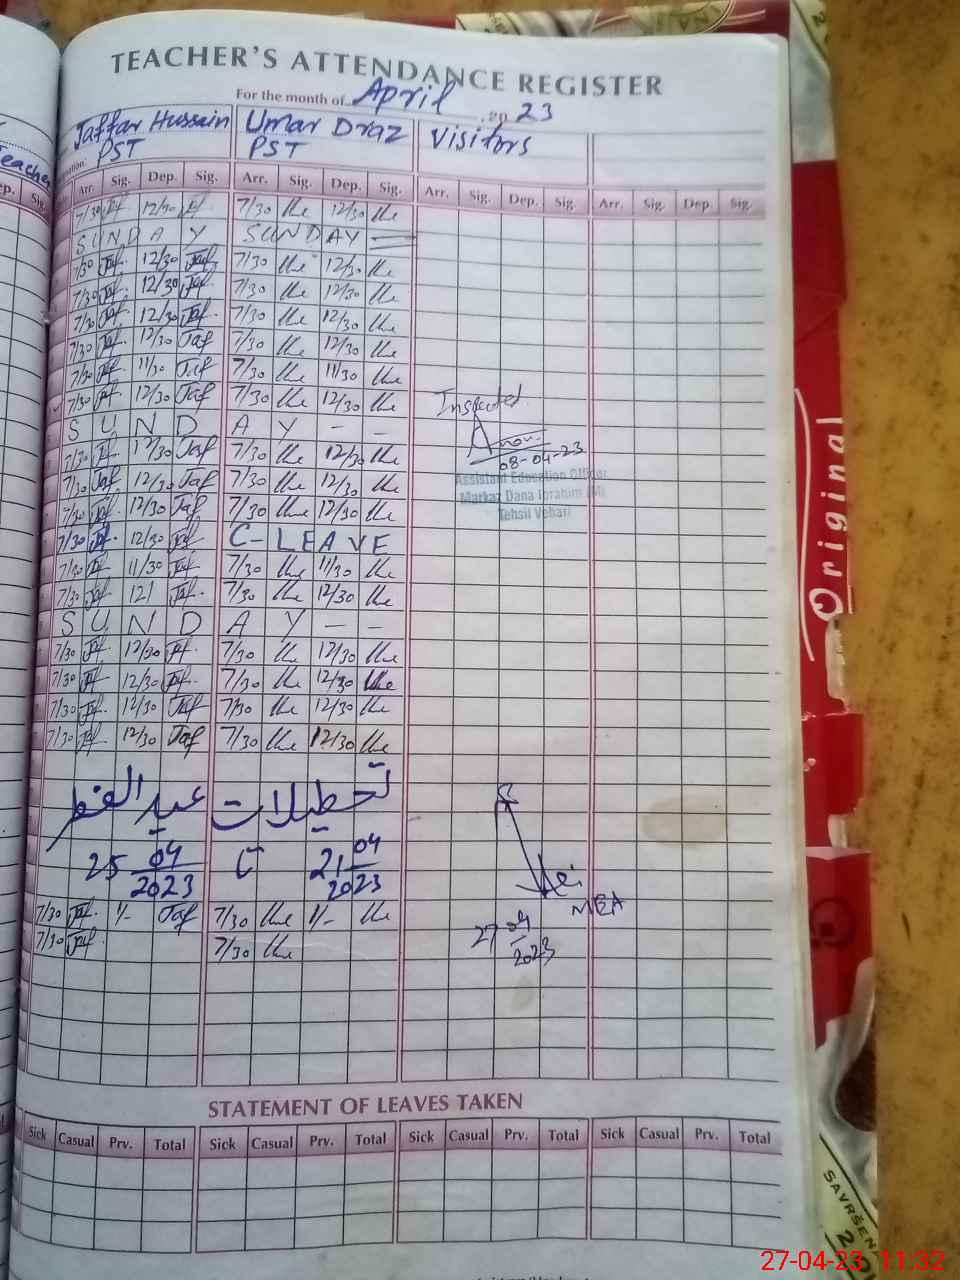 TEACHER'S ATTENDANCE REGISTER
For the month of April 2023
Jaffar Hussain Umar Draz Visitors
PST PST
Teacher
Arr. Sig. Dep. Sig. Arr. Sig. Dep. Sig. Arr. Sig. Dep. Sig. Arr. Sig. Dep. Sig.
7/30 12/30 7/30 Ume 12/30 Ume
SUNDAY SUNDAY
7/30 Jaf 12/30 Jaf 7/30 Ume 12/30 Ume
7/30 Jaf 12/30 Jaf 7/30 Ume 12/30 Ume
7/30 Jaf 12/30 Jaf 7/30 Ume 12/30 Ume
7/30 Jaf 12/30 Jaf 7/30 Ume 12/30 Ume
7/30 Jaf 11/30 Jaf 7/30 Ume 11/30 Ume
7/30 Jaf 12/30 Jaf 7/30 Ume 12/30 Ume
Inspected
SUNDAY - -
7/30 Jaf 12/30 Jaf 7/30 Ume 12/30 Ume
08-04-23
Assistant Education Officer
7/30 Jaf 12/30 Jaf 7/30 Ume 12/30 Ume
Markaz Dana Ibrahim (M)
7/30 Jaf 12/30 Jaf 7/30 Ume 12/30 Ume
Tehsil Vehari
7/30 Jaf 12/30 Jaf C-LEAVE
7/30 Jaf 11/30 Jaf 7/30 Ume 11/30 Ume
7/30 Jaf 12/ Jaf 7/30 Ume 12/30 Ume
SUNDAY - -
7/30 Jaf 12/30 Jaf 7/30 Ume 12/30 Ume
7/30 Jaf 12/30 Jaf 7/30 Ume 12/30 Ume
7/30 Jaf 12/30 Jaf 7/30 Ume 12/30 Ume
7/30 Jaf 12/30 Jaf 7/30 Ume 12/30 Ume
تعطیلات عید الفطر
21 04/2023 تا 25 04/2023
MEA
7/30 Jaf 1/- Jaf 7/30 Ume 1/- Ume
27 04/2023
7/30 Jaf 7/30 Ume
STATEMENT OF LEAVES TAKEN
Sick Casual Prv. Total Sick Casual Prv. Total Sick Casual Prv. Total Sick Casual Prv. Total
Original
SAVRŠENA
27-04-23 11:32